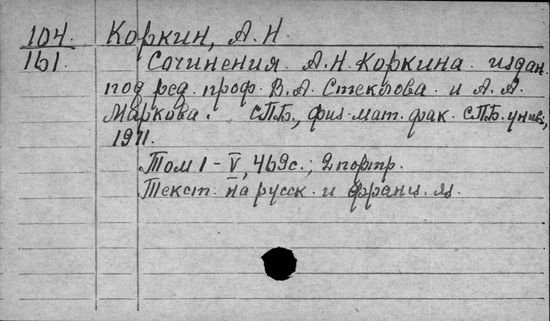 104. Коркин, А. Н.
161. Сочинения А. Н. Коркина издан.
под ред. проф. В. А. Стеклова и А. А.
Маркова. СПБ., физ-мат. фак. СПБ. унив.,
1911.
Том I - V, 469 с.; 2 портр.
Текст на русск. и франц. яз.